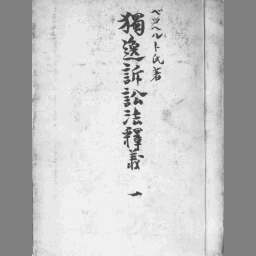 ベツヘルト氏著
獨逸訴訟法釋義 一